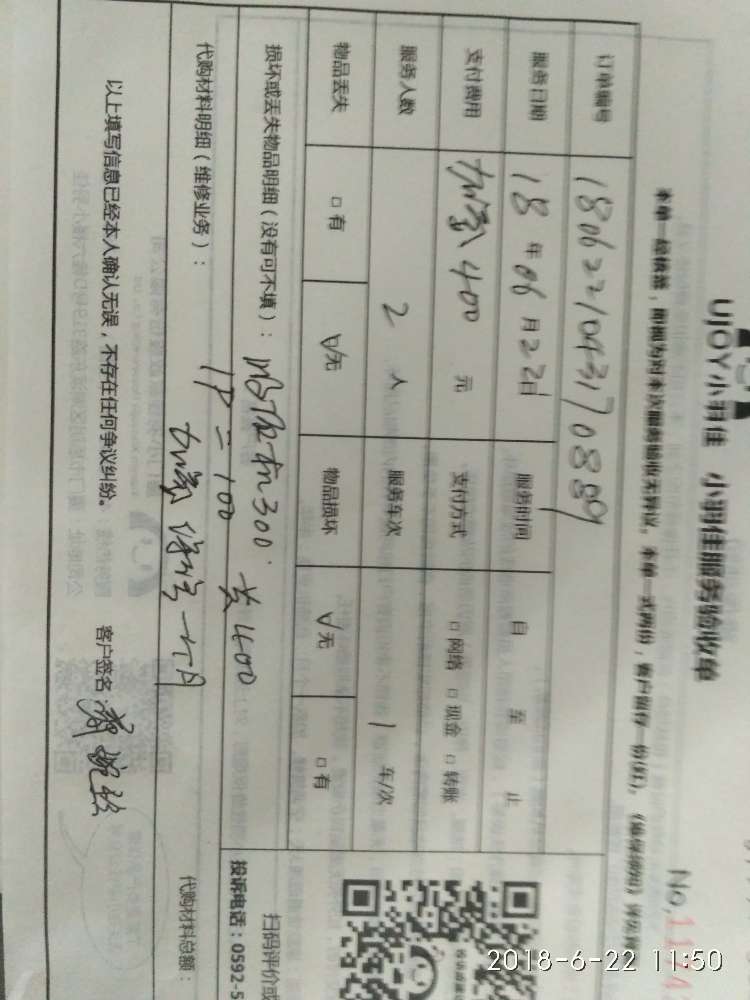 UJOY小羽佳 小羽佳服务验收单
No.1124
本单一经核签，即视为对本次服务验收无异议。本单一式两份，客户留存 份(红)。
订单编号 180622104317088
服务日期 18 年 06 月 22日 服务时间 自 至 止
支付费用 加氟400 元 支付方式 □网络 □现金 □转账
服务人数 2 人 服务车次 1 车/次
物品丢失 □有 ☑无 物品损坏 ☑无 □有
损坏或丢失物品明细（没有可不填）： 300. 共400
1P=100
代购材料明细（维修业务）： 加氟 一个月
代购材料总额：
以上填写信息已经本人确认无误，不存在任何争议纠纷。 客户签名
扫码评价或
投诉电话：0592-5
2018-6-22 11:50